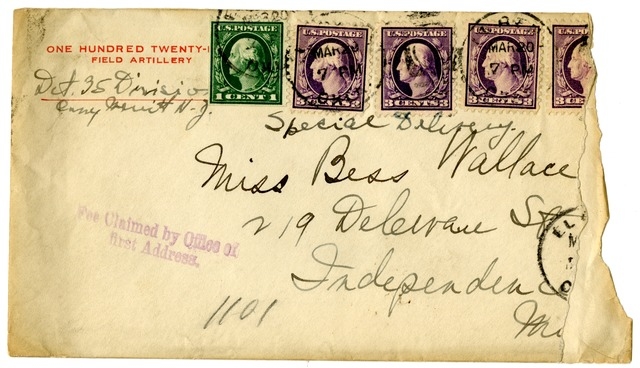 ONE HUNDRED TWENTY-
FIELD ARTILLERY
Det. 35 Division
Camp Merritt N.J.
U.S.POSTAGE
1 CENTS 1
U.S.POSTAGE
U.S.POSTAGE
3 CENTS 3
U.S.POSTAGE
U.S.P
3 C
MAR 20
7 PM
MAR 20
7 PM
Special Delivery
Miss Bess Wallace
219 Delaware St
Independenc
Mi
Fee Claimed by Office of
first Address.
1101